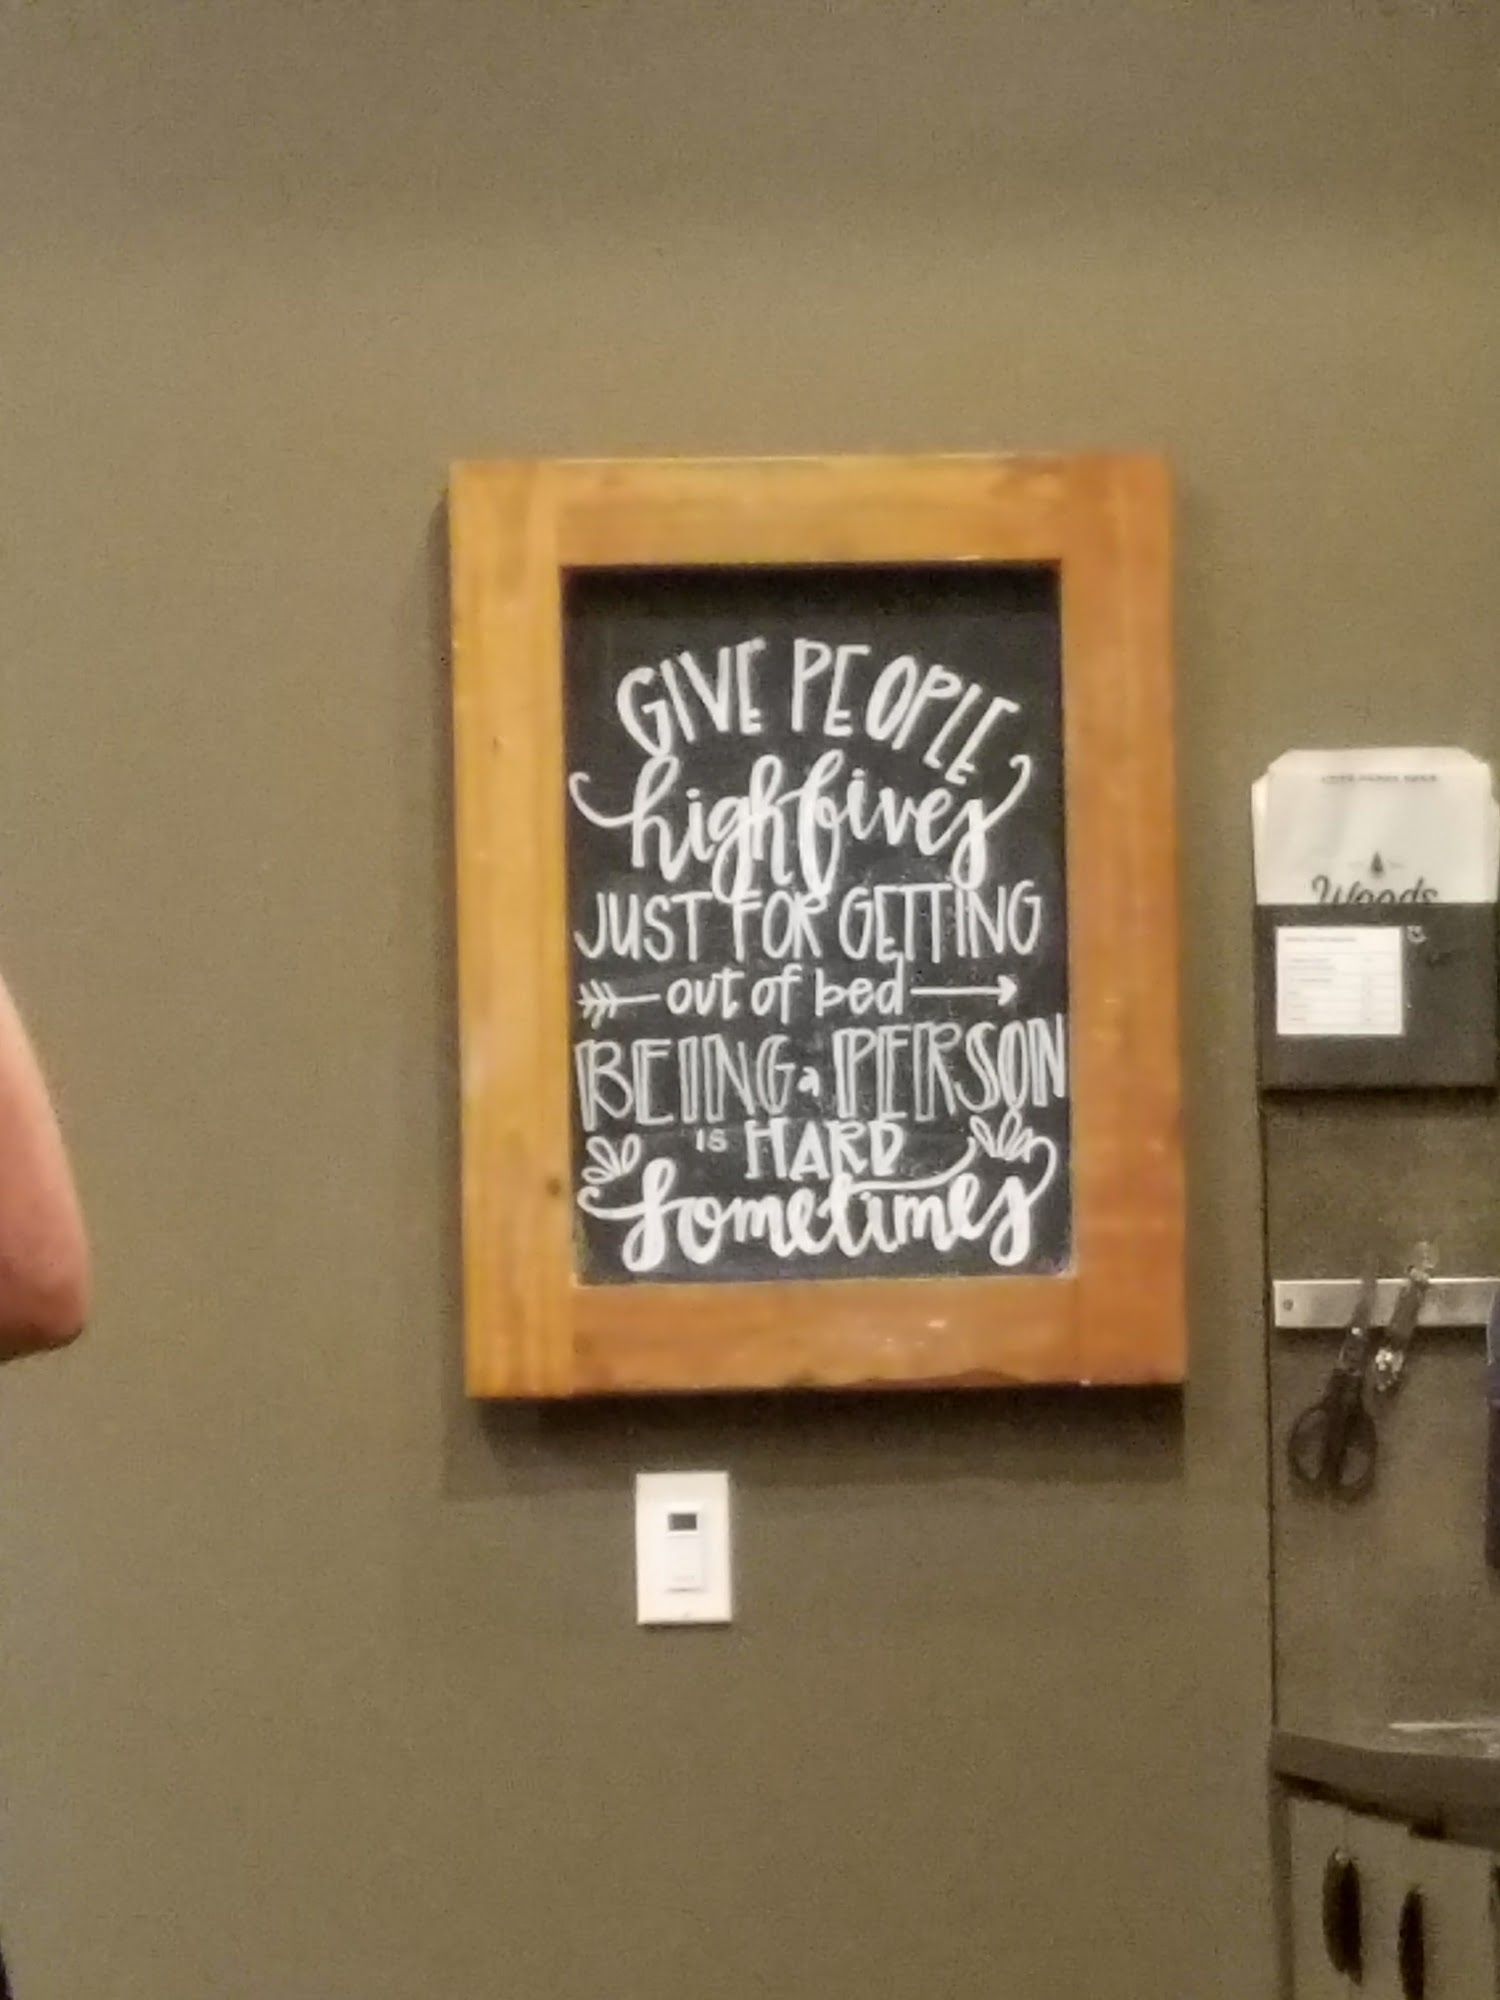 GIVE PEOPLE
high fives
JUST FOR GETTING
out of bed
BEING a PERSON
IS HARD
sometimes
Woods